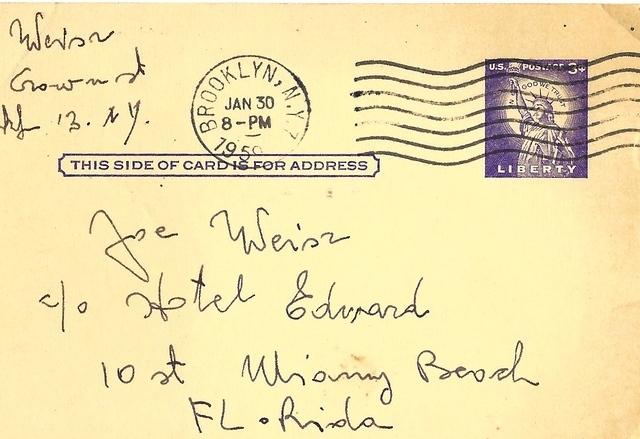 Weisz
Crown st
13. NY.
BROOKLYN, N.Y.
JAN 30
8-PM
195
U.S. POSTAGE 3¢
IN GOD WE TRUST
LIBERTY
THIS SIDE OF CARD IS FOR ADDRESS
Joe Weisz
c/o Hotel Edward
10 st Miamy Beach
FLoRida